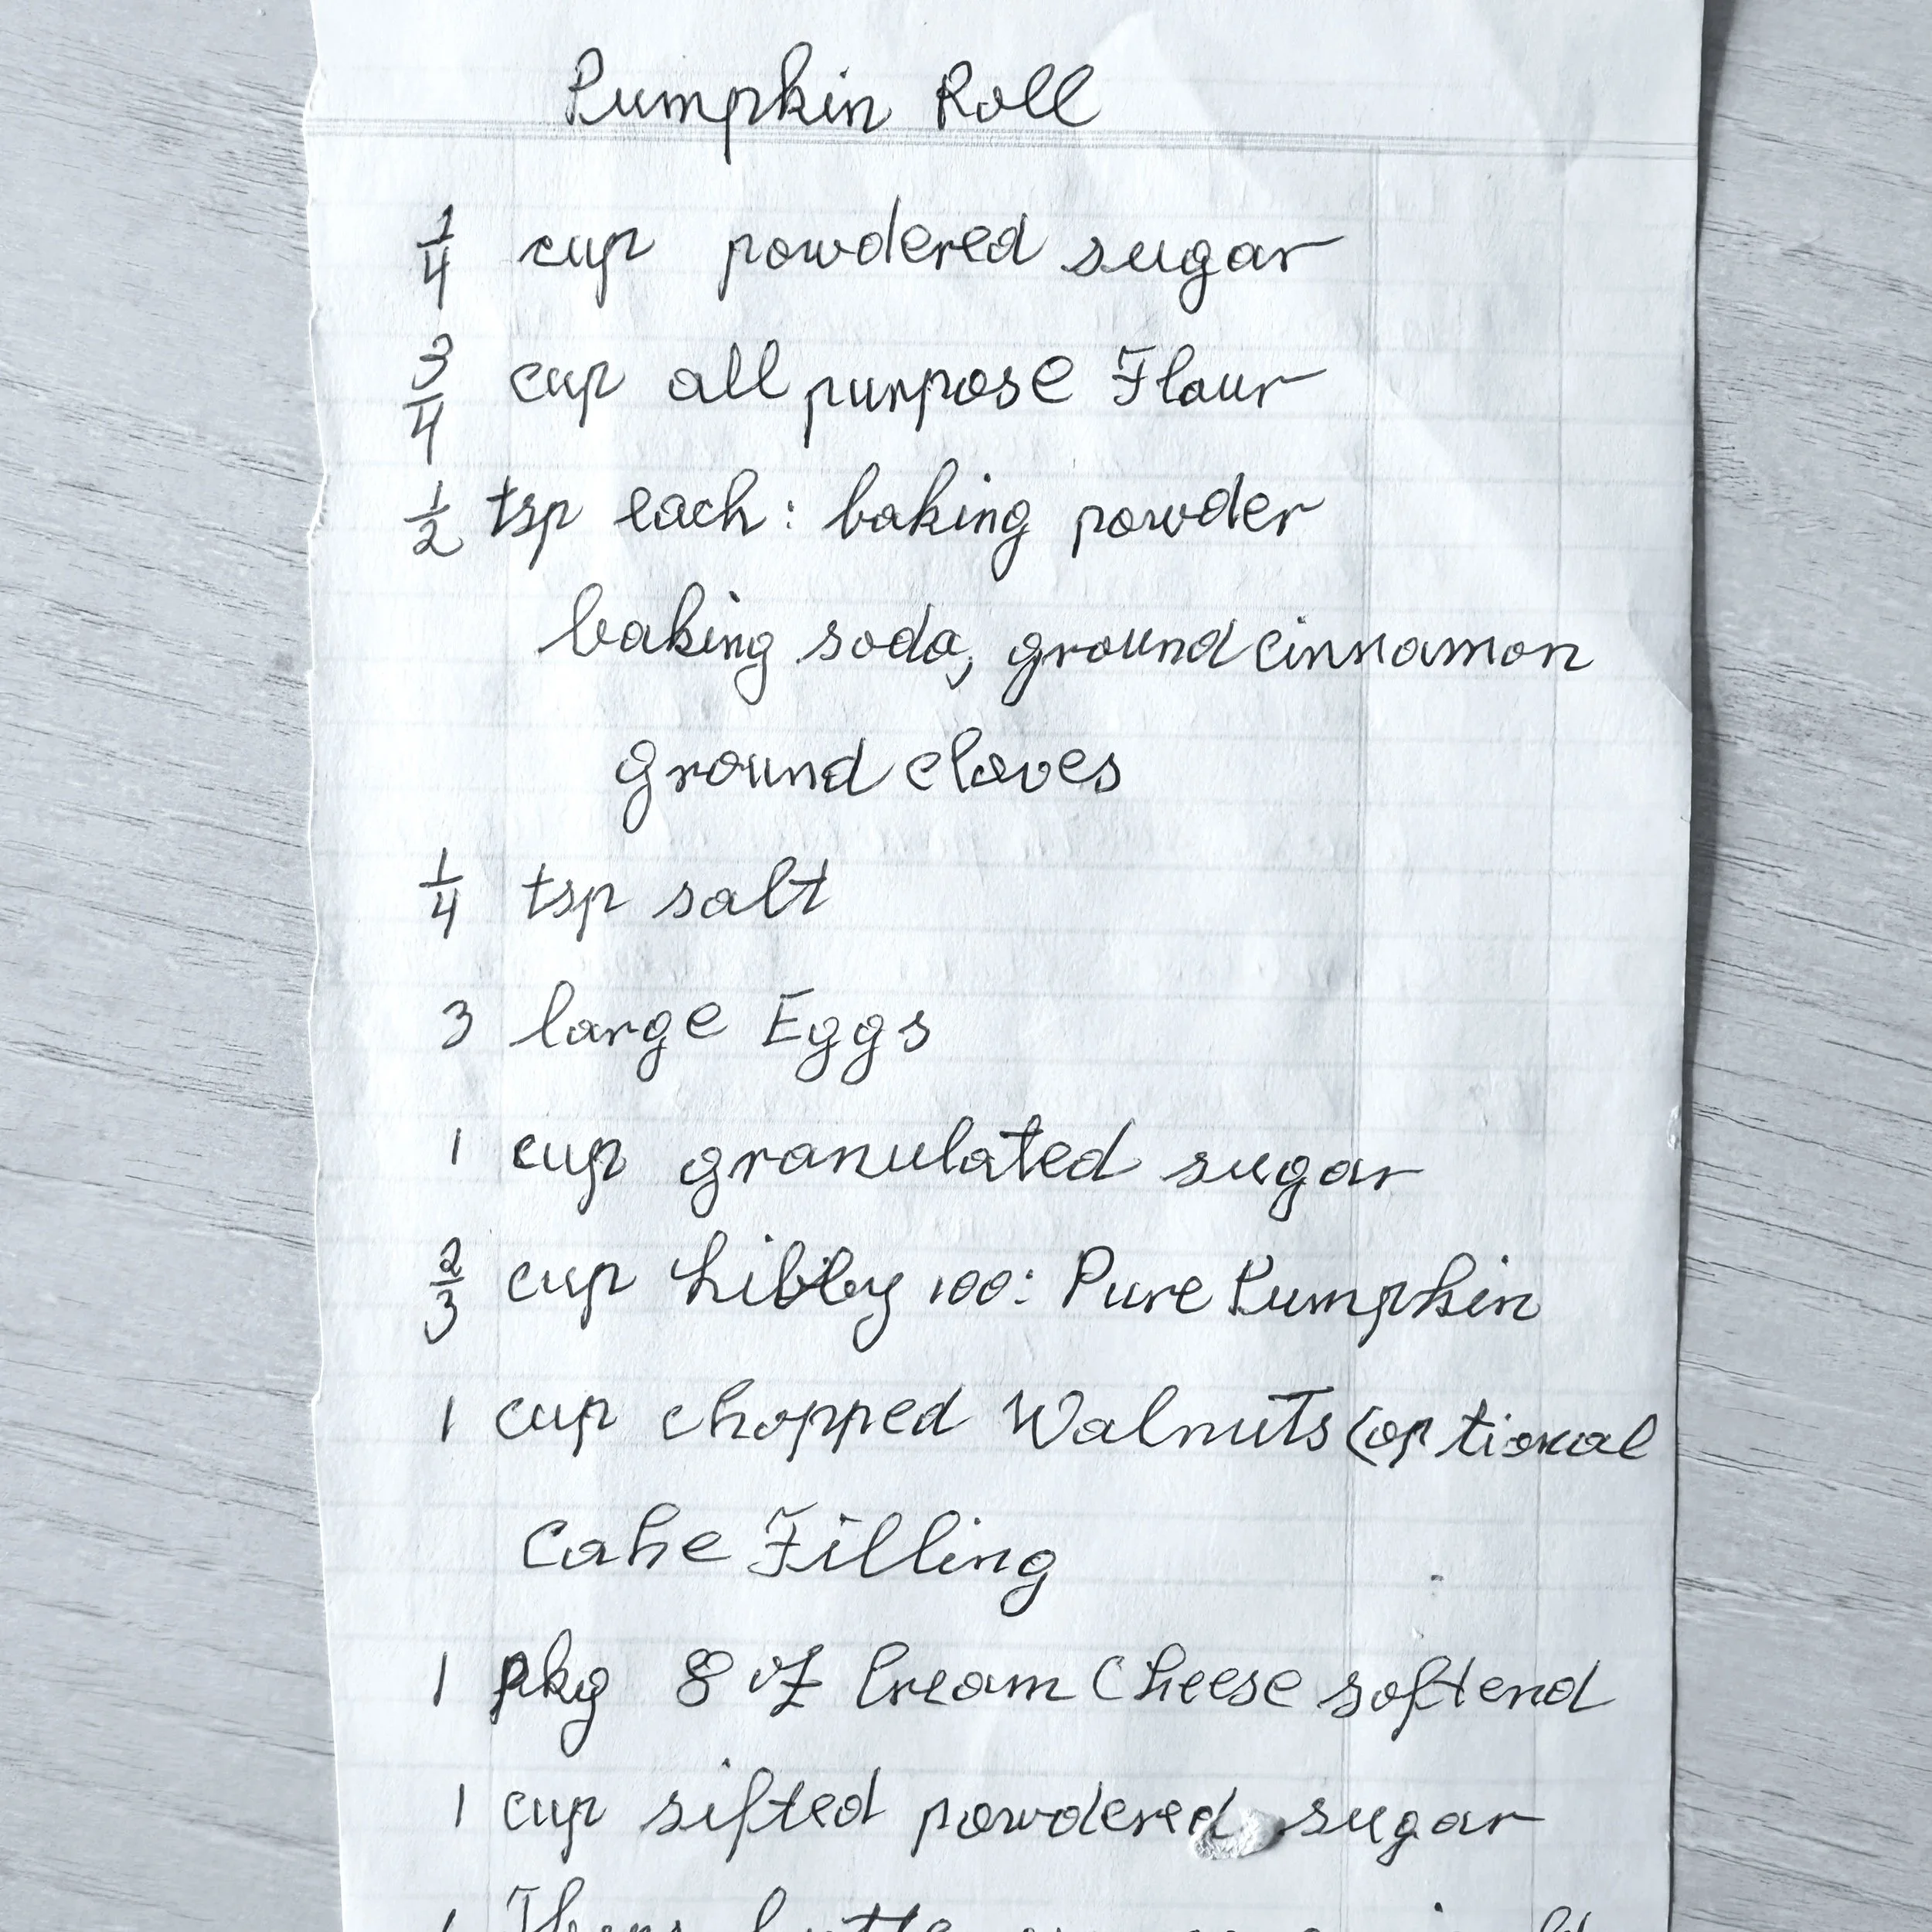 Pumpkin Roll
1/4 cup powdered sugar
3/4 cup all purpose Flour
1/2 tsp each: baking powder
baking soda, ground cinnamon
ground cloves
1/4 tsp salt
3 large Eggs
1 cup granulated sugar
2/3 cup Libby 100: Pure Pumpkin
1 cup chopped Walnuts (optional
Cake Filling
1 pkg 8 oz Cream Cheese softend
1 cup sifted powdered sugar